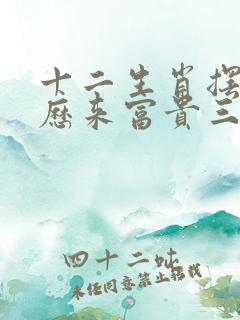 十二生肖摆
历来富贵三
四十二妖
未经同意禁止转载